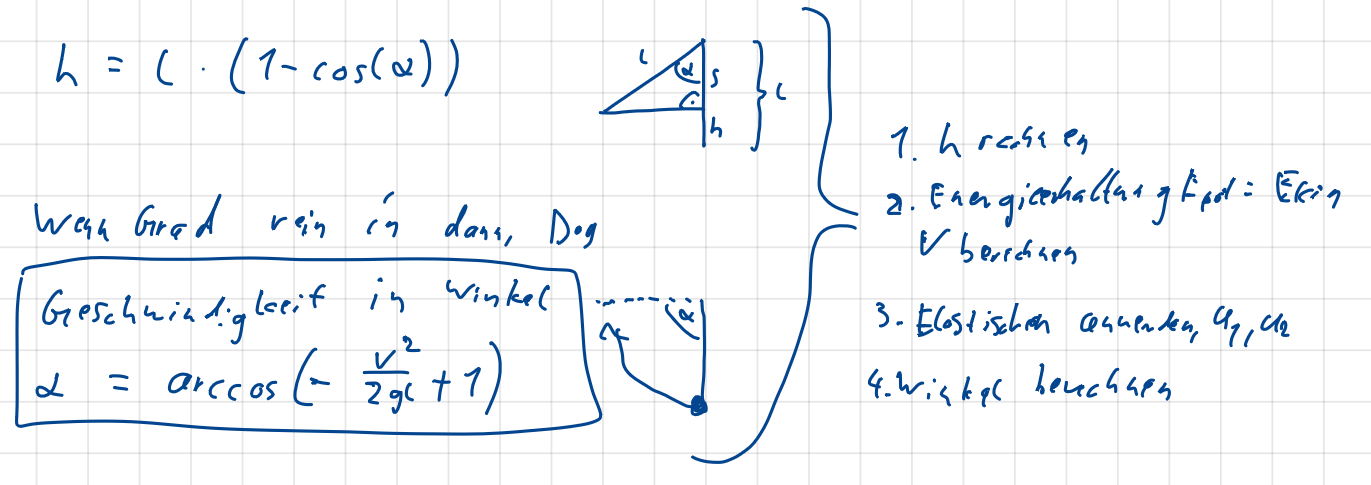 h = l · (1 - cos(α))
l
α
s
h
l
Wenn Grad rein in dann, Deg
Geschwindigkeit in Winkel
α = arccos(- v²/2gl + 1)
α
1. h rechnen
2. Energieerhaltung Epot = Ekin
V berechnen
3. Elastischen anwenden, u₁, u₂
4. Winkel berechnen